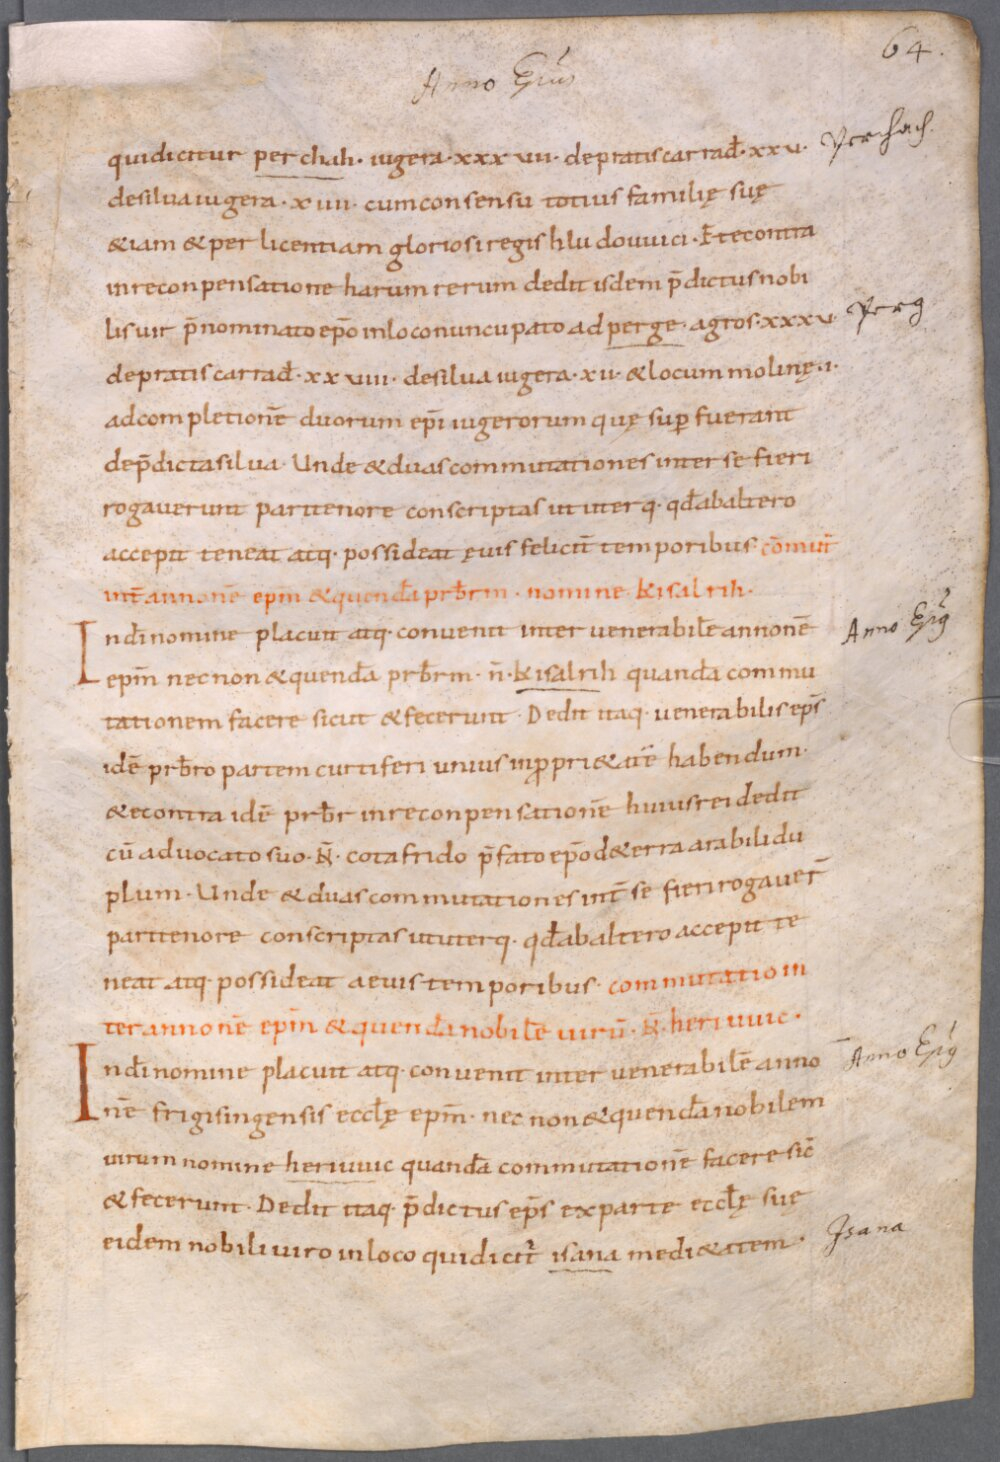 64.
Anno Ep̄us
qui dicitur perchah · iugera · xxx vii · de pratis carrad̄ · xxv · Perchach.
de silua iugera · x iiii · cum consensu totius familię suę
&iam & per licentiam gloriosi regis hludouuici · Et econtra
in reconpensatione harum rerum dedit isdem p̄dictus nobi
lis uir p̄nominato ep̄o in loco nuncupato ad perge · agros · xxxv · Perg
de pratis carrad̄ · xx viiii · de silua iugera · xii · & locum molinę · i ·
ad completionē duorum ep̄i iugerorum quę sup̄ fuerant
de p̄dicta silua · Unde & duas commutationes inter se fieri
rogauerunt pari tenore conscriptas ut uterq · qd̄ ab altero
accepit teneat atq · possideat ęuis felicit̄ temporibus com̄mut̄
int̄ annonē ep̄m & quenda prb̄rm · nomine kisalrih ·
In dī nomine placuit atq · conuenit inter uenerabilē annonē Anno Ep̄g
ep̄m nec non & quendā prb̄rm · n̄ · kisalrih quandā commu
tationem facere sicut & fecerunt · Dedit itaq · uenerabilis ep̄s
idē prb̄ro partem curtiferi unius in propri&atē habendum ·
& econtra idē prb̄r in reconpensationē huius rei dedit
cū aduocato suo · N̄ · cotafrido p̄fato ep̄o de terra arabili du
plum · Unde & duas commutationes int̄ se fieri rogauer̄
pari tenore conscriptas ut uterq · qd̄ ab altero accepit te
neat atq · possideat aeuis temporibus · commutatio in
ter annonē ep̄m & quendā nobilē uirū · N̄ · heriuuic ·
In dī nomine placuit atq · conuenit inter uenerabilē anno Anno Ep̄g
nē frigisingensis eccłę ep̄m · nec non & quendā nobilem
uirum nomine heriuuic quandā commutationē facere sic̄
& fecerunt · Dedit itaq · p̄dictus ep̄s ex parte eccłę suę
eidem nobili uiro in loco qui dicit̄ isana medi&atem · Isana